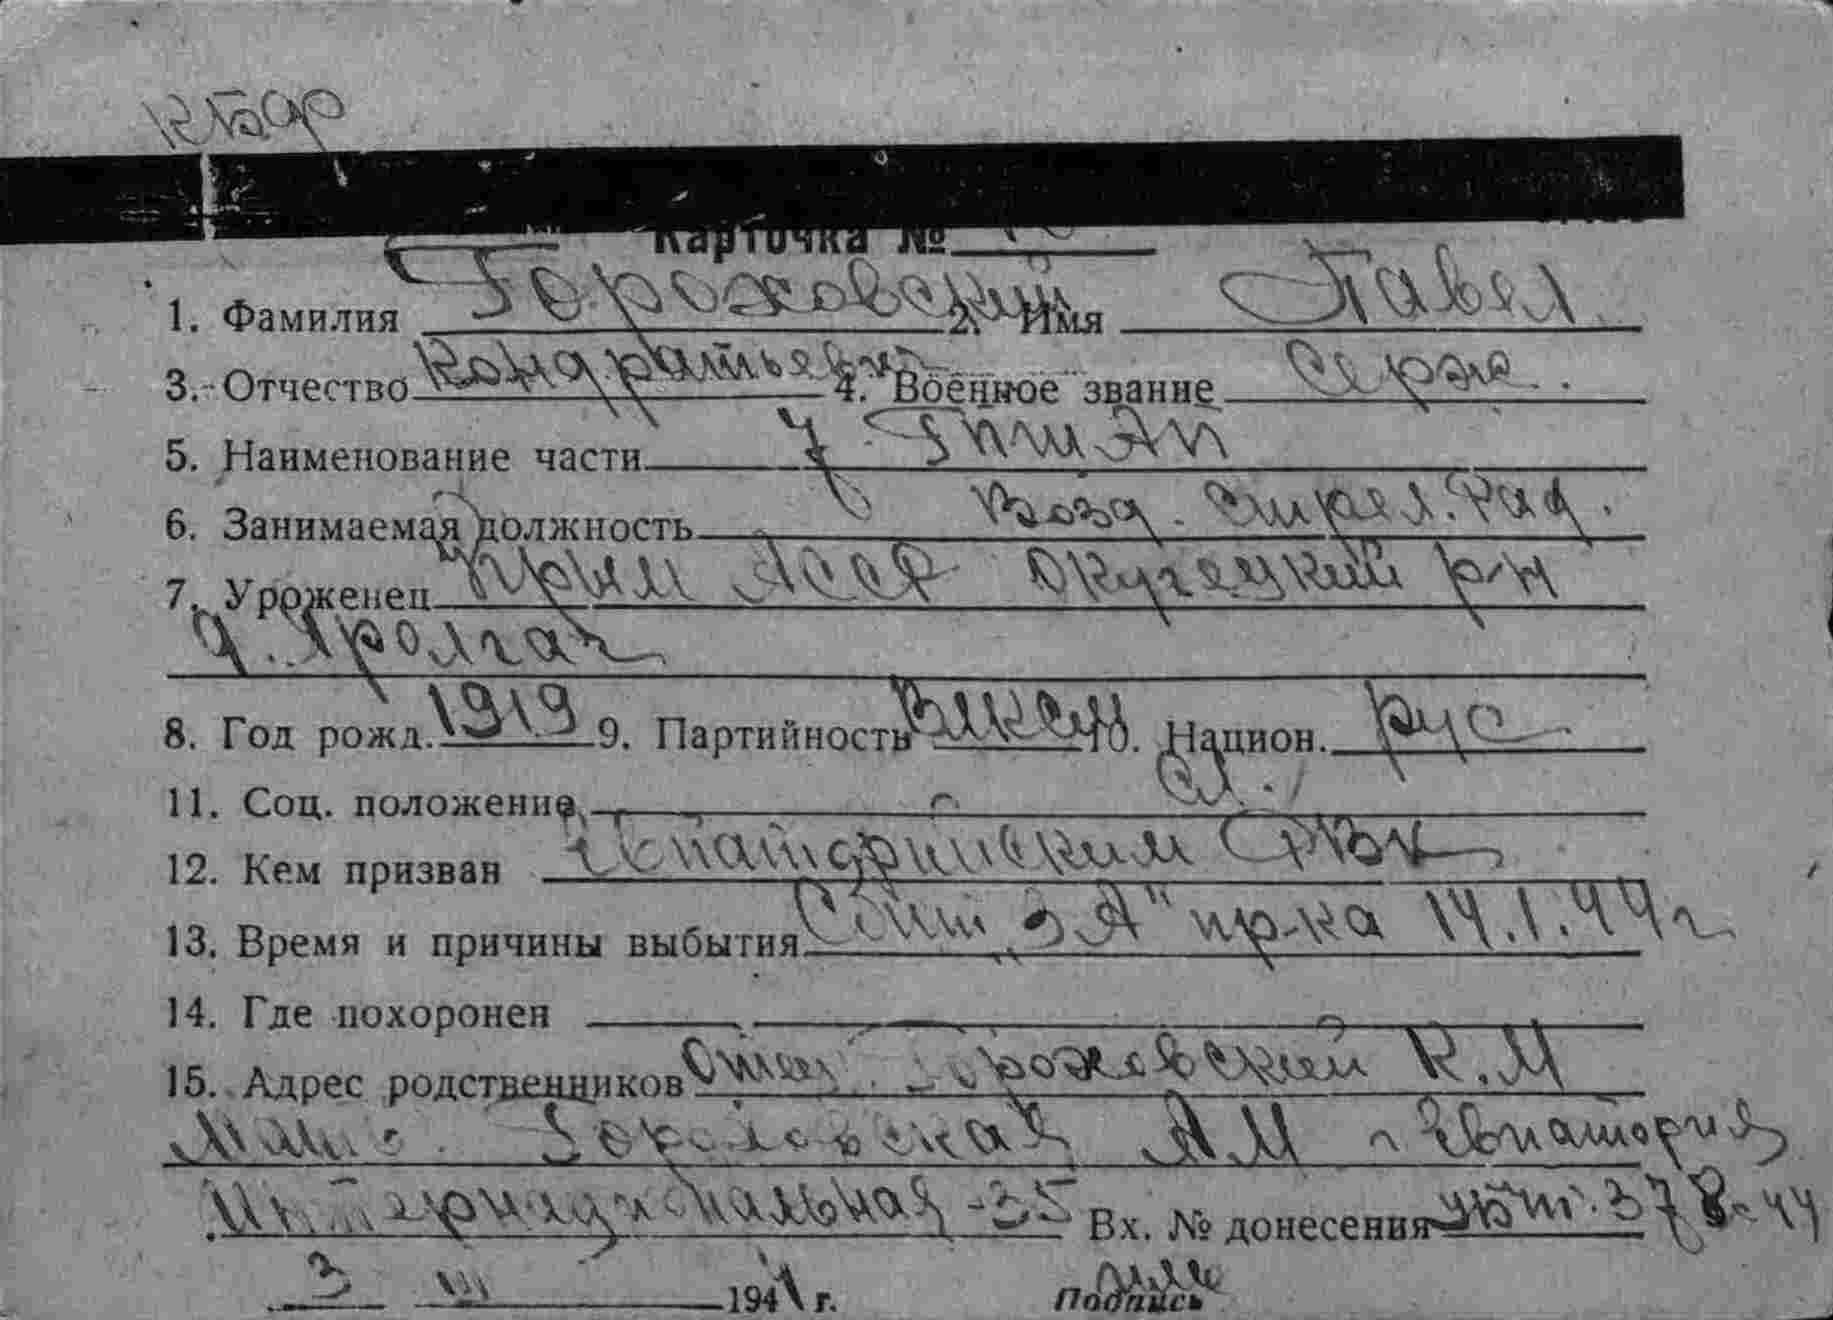 КБФ
Карточка №
1. Фамилия Гороховский 2. Имя Павел
3. Отчество Кондратьевич 4. Военное звание Серж.
5. Наименование части 7 ГПШАП
6. Занимаемая должность Возд. стрел. рад.
7. Уроженец Крым АССР р-н
д.
8. Год рожд. 1919 9. Партийность ВЛКСМ 10. Национ. рус
11. Соц. положение сл.
12. Кем призван Евпаторийским РВК
13. Время и причины выбытия Сбит „ЗА" пр-ка 14.1.44 г
14. Где похоронен
15. Адрес родственников Отец. Гороховский К.М
Мать. Гороховская А М г Евпатория
Интернациональная - 35 Вх. № донесения 378с-44
3 III 1944 г. Подпись